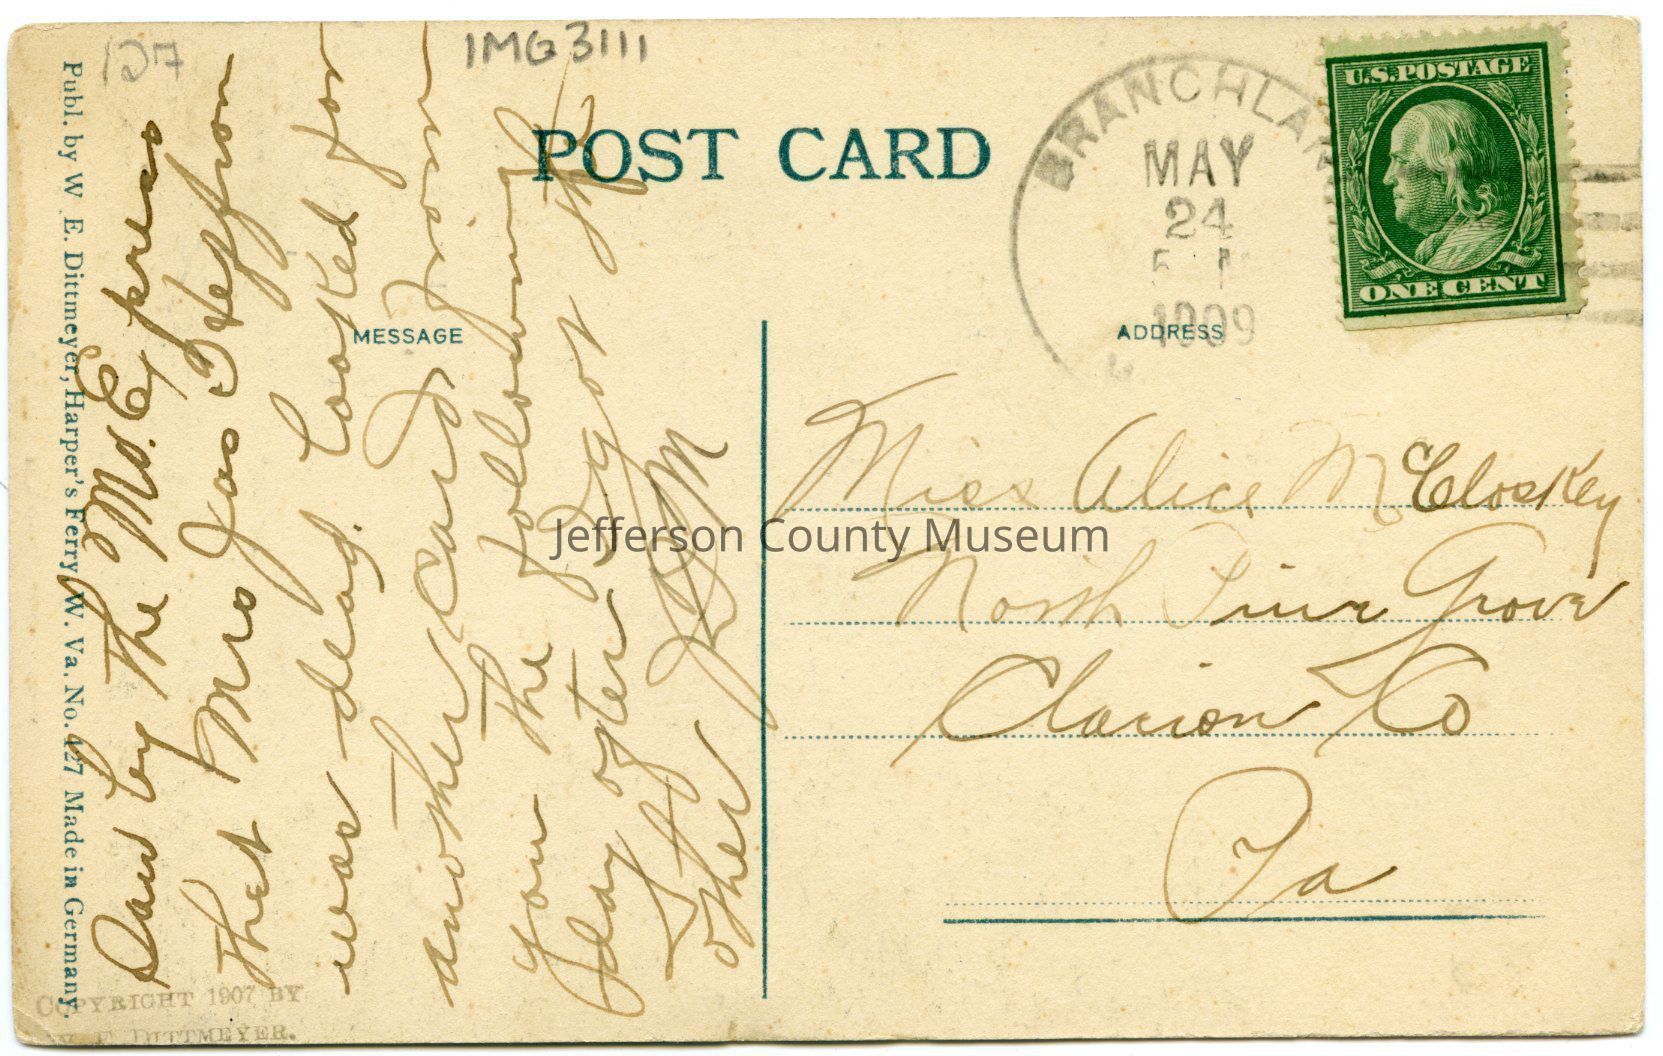 127
IMG 3111
POST CARD
BRANCHLAN
MAY
24
1909
U.S. POSTAGE
ONE CENT
MESSAGE
ADDRESS
Publ. by W. E. Dittmeyer, Harper's Ferry W. Va. No. 427 Made in Germany.
Saw by the Md. Express
that Mrs Jas Heffron
was dead. looked for
another card from
you the following
day after I got the
other
J D M
Miss Alice McCloskey
North Pine Grove
Clarion Co
Pa
Jefferson County Museum
COPYRIGHT 1907 BY
W. E. DITTMEYER.